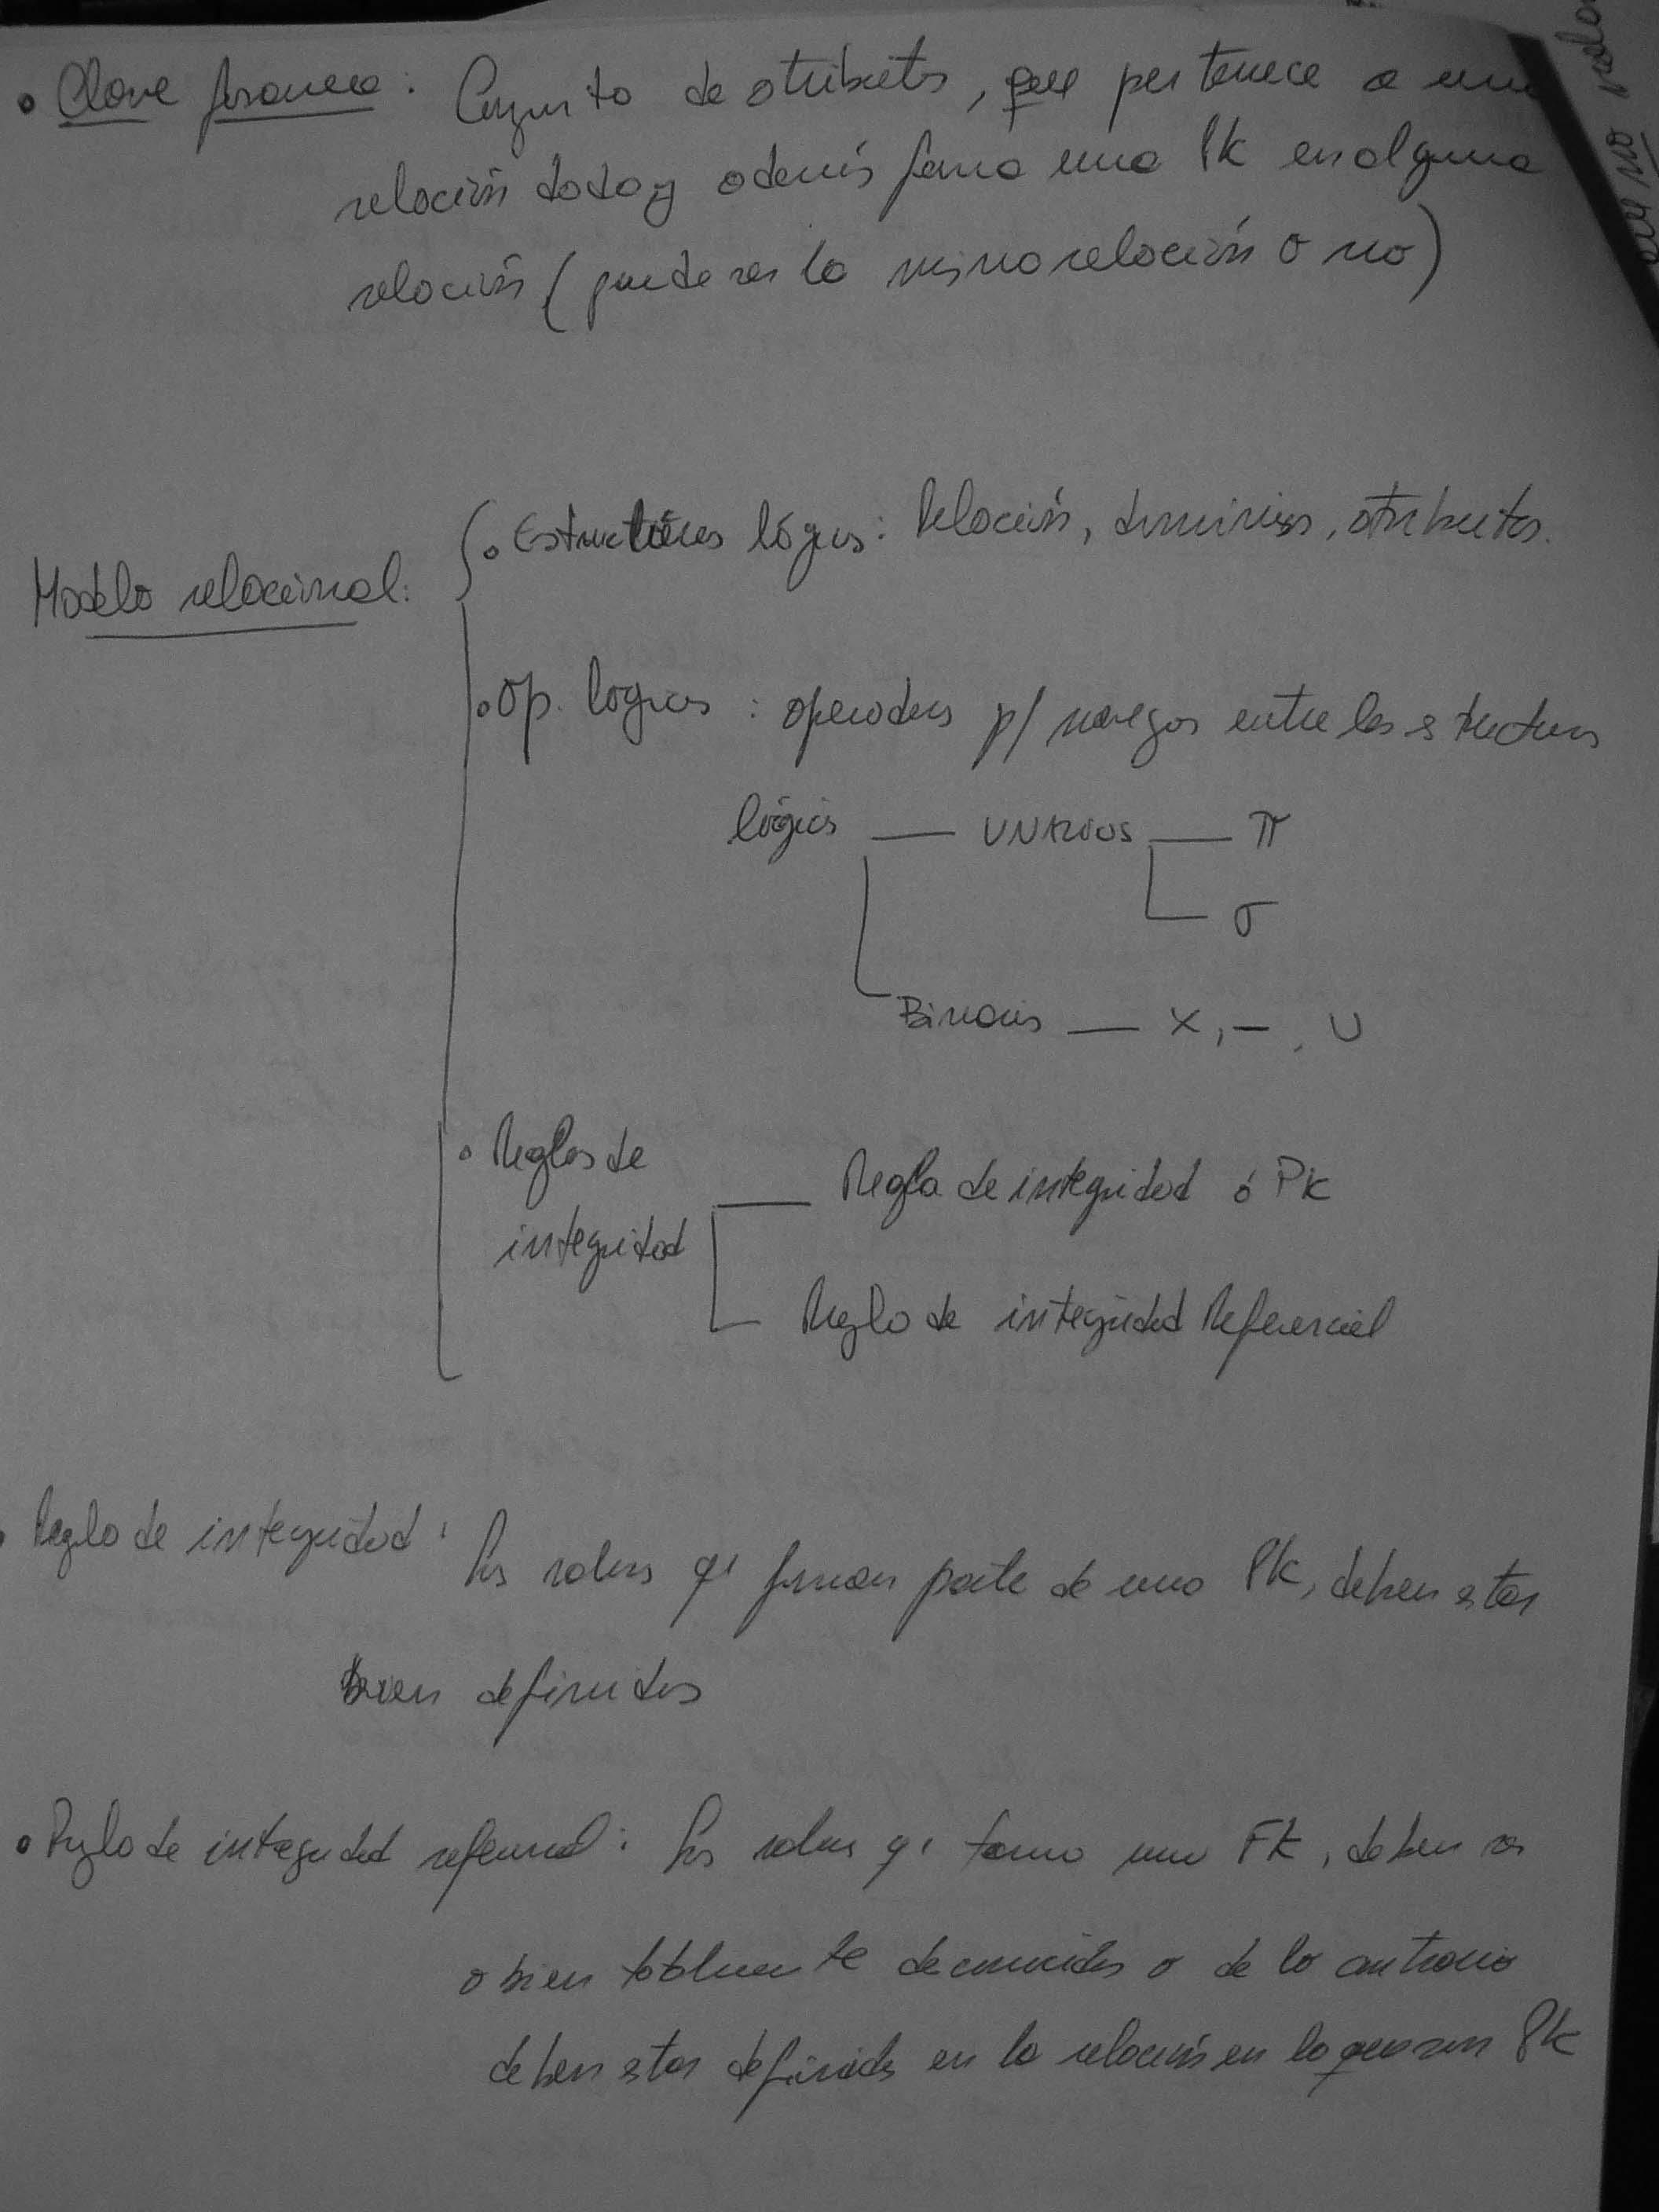 • Clave foranea: Conjunto de atributos, que pertenece a una
relación dada y además forma una PK en alguna
relación (puede ser la misma relación o no)
Modelo relacional:
• Estructuras lógicas: Relación, dominios, atributos.
• Op. logicos: operadores p/ navegar entre las estructuras
lógicas — UNARIOS — π
σ
Binarios — X, —, U
• Reglas de
integridad
Regla de integridad ó PK
Regla de integridad Referencial
• Regla de integridad: Los valores q' forman parte de una PK, deben estar
bien definidos
• Regla de integridad referencial: Los valores q' toma una FK, deben ser
o bien totalmente desconocidos o de lo contrario
deben estar definidos en la relación en la que son PK
que no